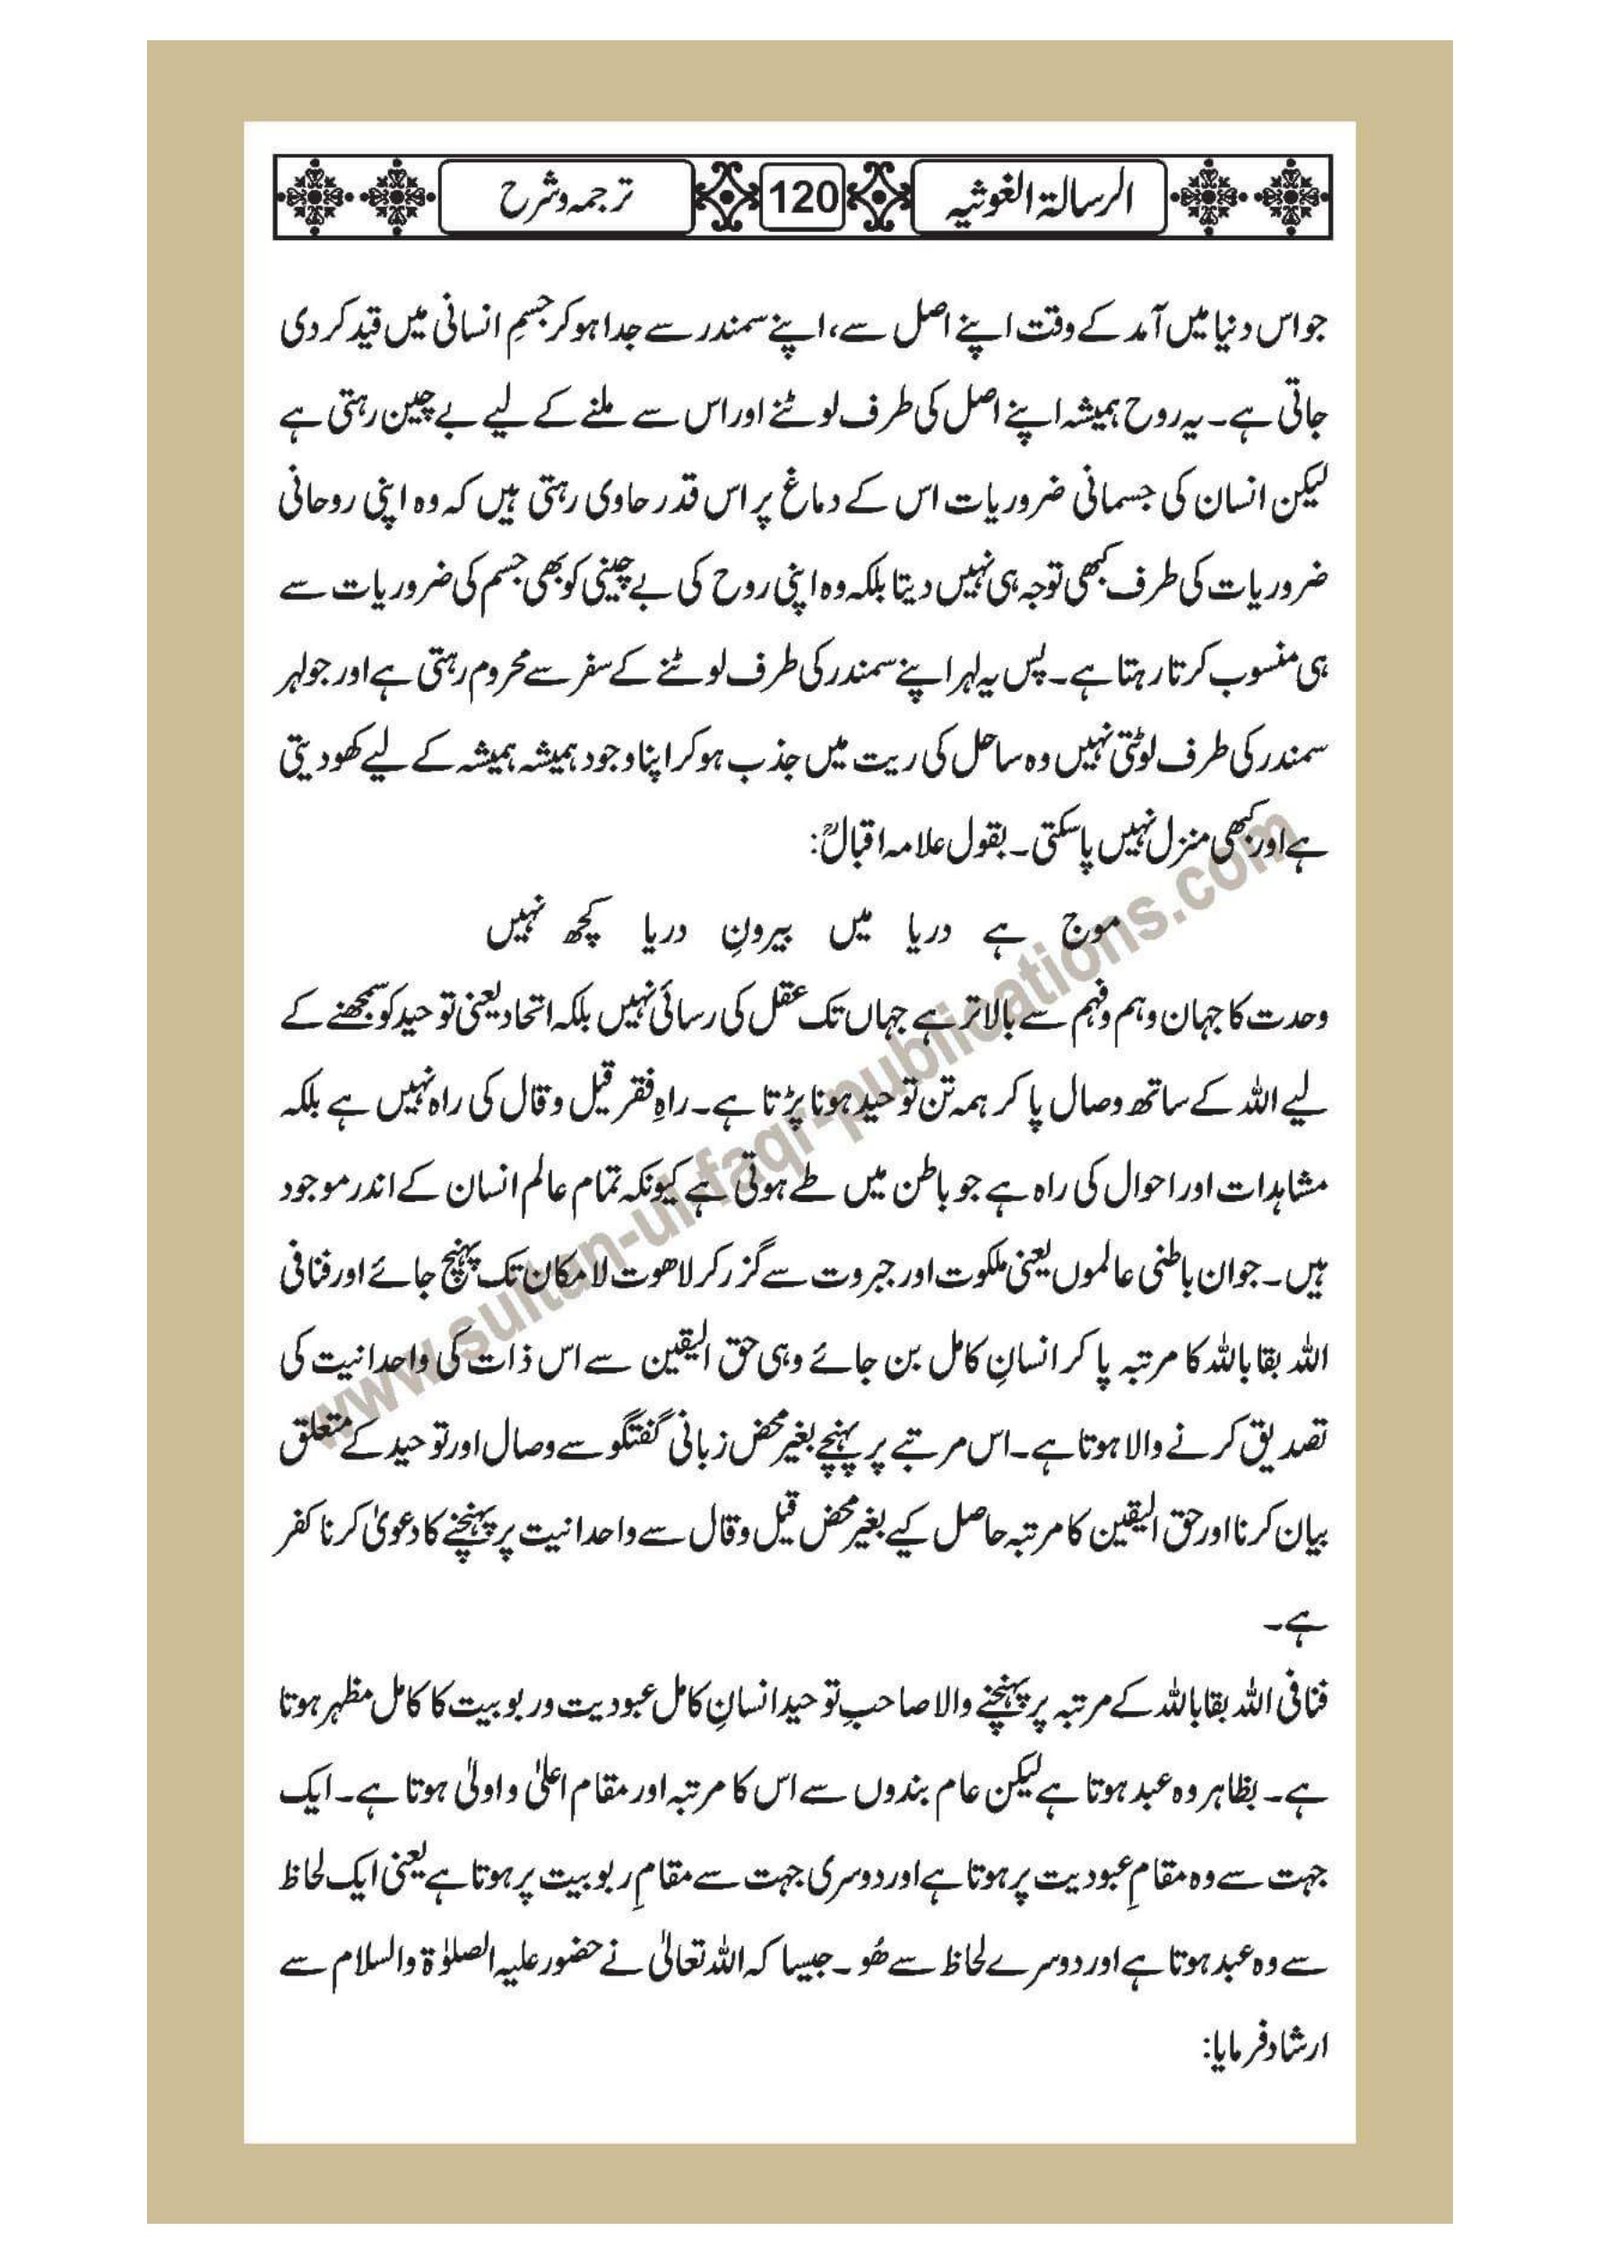 الرسالۃ الغوثیہ 120 ترجمہ و شرح
جو اس دنیا میں آمد کے وقت اپنے اصل سے، اپنے سمندر سے جدا ہو کر جسمِ انسانی میں قید کر دی
جاتی ہے۔ یہ روح ہمیشہ اپنے اصل کی طرف لوٹنے اور اس سے ملنے کے لیے بے چین رہتی ہے
لیکن انسان کی جسمانی ضروریات اس کے دماغ پر اس قدر حاوی رہتی ہیں کہ وہ اپنی روحانی
ضروریات کی طرف کبھی توجہ ہی نہیں دیتا بلکہ وہ اپنی روح کی بے چینی کو بھی جسم کی ضروریات سے
ہی منسوب کرتا رہتا ہے۔ پس یہ لہر اپنے سمندر کی طرف لوٹنے کے سفر سے محروم رہتی ہے اور جو لہر
سمندر کی طرف لوٹتی نہیں وہ ساحل کی ریت میں جذب ہو کر اپنا وجود ہمیشہ ہمیشہ کے لیے کھو دیتی
ہے اور کبھی منزل نہیں پا سکتی۔ بقول علامہ اقبالؒ:
موج ہے دریا میں بیرونِ دریا کچھ نہیں
وحدت کا جہان وہم و فہم سے بالاتر ہے جہاں تک عقل کی رسائی نہیں بلکہ اتحاد یعنی توحید کو سمجھنے کے
لیے اللہ کے ساتھ وصال پا کر ہمہ تن توحید ہونا پڑتا ہے۔ راہِ فقر قیل و قال کی راہ نہیں ہے بلکہ
مشاہدات اور احوال کی راہ ہے جو باطن میں طے ہوتی ہے کیونکہ تمام عالم انسان کے اندر موجود
ہیں۔ جو ان باطنی عالموں یعنی ملکوت اور جبروت سے گزر کر لاھوت لامکان تک پہنچ جائے اور فنا فی
اللہ بقا باللہ کا مرتبہ پا کر انسانِ کامل بن جائے وہی حق الیقین سے اس ذات کی واحدانیت کی
تصدیق کرنے والا ہوتا ہے۔ اس مرتبے پر پہنچے بغیر محض زبانی گفتگو سے وصال اور توحید کے متعلق
بیان کرنا اور حق الیقین کا مرتبہ حاصل کیے بغیر محض قیل و قال سے واحدانیت پر پہنچنے کا دعویٰ کرنا کفر
ہے۔
فنا فی اللہ بقا باللہ کے مرتبہ پر پہنچنے والا صاحبِ توحید انسانِ کامل عبودیت و ربوبیت کا کامل مظہر ہوتا
ہے۔ بظاہر وہ عبد ہوتا ہے لیکن عام بندوں سے اس کا مرتبہ اور مقام اعلیٰ و اولیٰ ہوتا ہے۔ ایک
جہت سے وہ مقامِ عبودیت پر ہوتا ہے اور دوسری جہت سے مقامِ ربوبیت پر ہوتا ہے یعنی ایک لحاظ
سے وہ عبد ہوتا ہے اور دوسرے لحاظ سے ھُو۔ جیسا کہ اللہ تعالیٰ نے حضور علیہ الصلوٰۃ والسلام سے
ارشاد فرمایا:
www.sultan-ul-faqr-publications.com